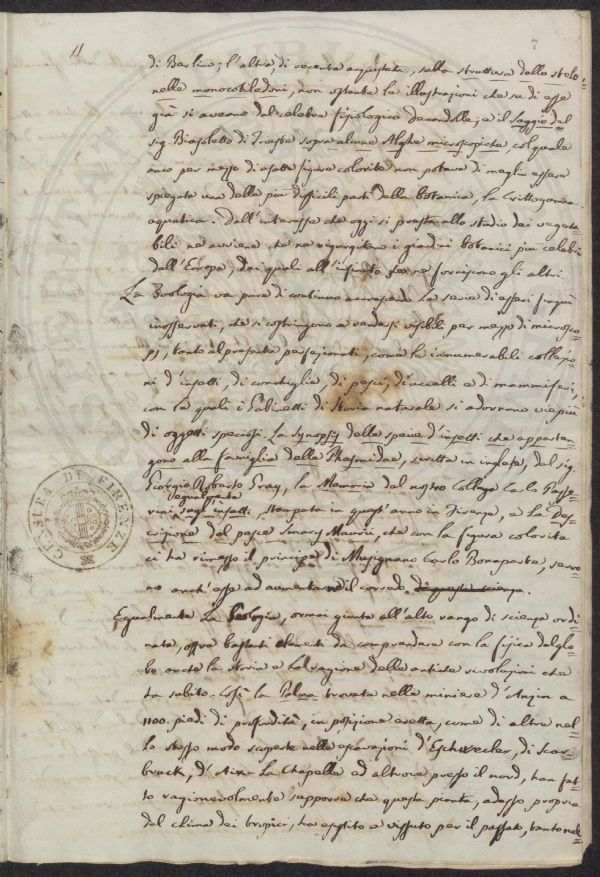 11
7
di Berlino; l'altra, di recente acquistata, sulla struttura dello stelo
nelle monocotiledoni, non ostante le illustrazioni che su di esse
già si aveano dal celebre fisiologico Decandolle; e il Saggio del
sig. Biasoletto di Trieste sopra alcune Alghe microscopiche, col quale
anco per mezzo di esatte figure colorite non poteva di meglio essere
spiegata una delle più difficili parti della botanica, la Crittogamia
aquatica. Dall'interesse che oggi si presta allo studio dei vegeta=
bili ne avviene che ne rigurgitano i giardini botanici più celebri
dell'Europa, dei quali all'infinito se ne forniscono gli altri
La Zoologia va pure di continuo accrescendo la serie di esseri finquì
inosservati, che si costringono a rendersi visibili per mezzo di microsco=
pj, tanto al presente perfezionati, come le innumerabili collezio=
ni d'insetti, di conchiglie, di pesci, di uccelli e di mammiferi,
con le quali i Gabinetti di Storia naturale si adornano viepiù
di oggetti speciosi. La Synopsis delle specie d'insetti che apparten=
gono alla famiglia delle Phasmidae, scritta in inglese, dal sig.
Giorgio Roberto Gray, la Memoria del nostro Collega Carlo Passe=
rini, sugl'insetti, stampata in quest'anno in Firenze, e la Des=
crizione del pesce Smary Maurii, che con la figura colorita
ci ha rimesso il principe di Musignano Carlo Bonaparte, servo=
no anch'esse ad aumentarne il corredo di questa scienza.
Egualmente la Geologia, ormai giunta all'alto rango di scienza ordi=
nata, offre bastanti elementi da comprendere con la fisica del glo=
be anche la storia e la ragione delle antiche rivoluzioni che
ha subìto. Così la Palma trovata nelle miniere d'Anzin a
1100. piedi di profondità, in posizione eretta, come di altre nel=
lo stesso modo scoperte nelle escavazioni d'Eschweiler, di Sear=
bruck, d'Aix-la-Chapelle ed altrove presso il nord, han fat=
to ragionevolmente supporre che questa pianta, adesso propria
del clima dei tropici, ha esistito e vissuto per il passato, tanto nel=
CENSURA DI FIRENZE